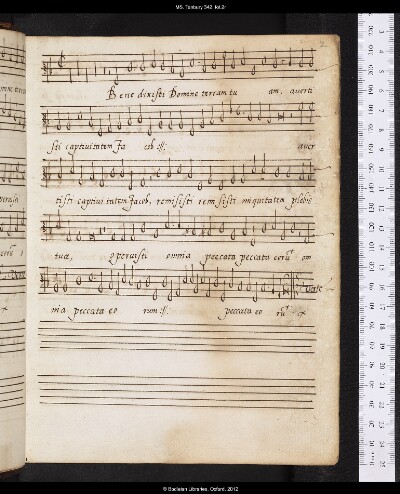 MS. Tenbury 342, fol.2r
2.
Bene dixisti Domine terram tu am, averti
sti captivitatem Ja cob :||: aver
tisti captivi tatem Jacob, remisisti remisisti iniquitatem plebis
tuæ, operuisti omnia peccata peccata eorũ om
nia peccata eo rum :||: peccata eo rũ
© Bodleian Libraries, Oxford, 2012